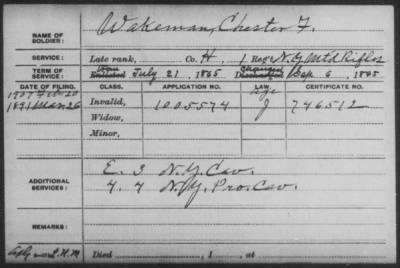 NAME OF SOLDIER: Wakeman, Chester F.
SERVICE: Late rank, Co. H, 1 Reg't N.Y. Mtd Rifles
TERM OF SERVICE: Enlisted July 21, 1865 Discharged Sep 6, 1865
DATE OF FILING. CLASS. APPLICATION NO. LAW. CERTIFICATE NO.
1907 Feb 20 Age
1891 Mar 26 Invalid, 1005574 J 746512
Widow,
Minor,
ADDITIONAL SERVICES: E. 3 N.Y. Cav.
4 N.Y. Pro. Cav.
REMARKS:
Died , 1 , at